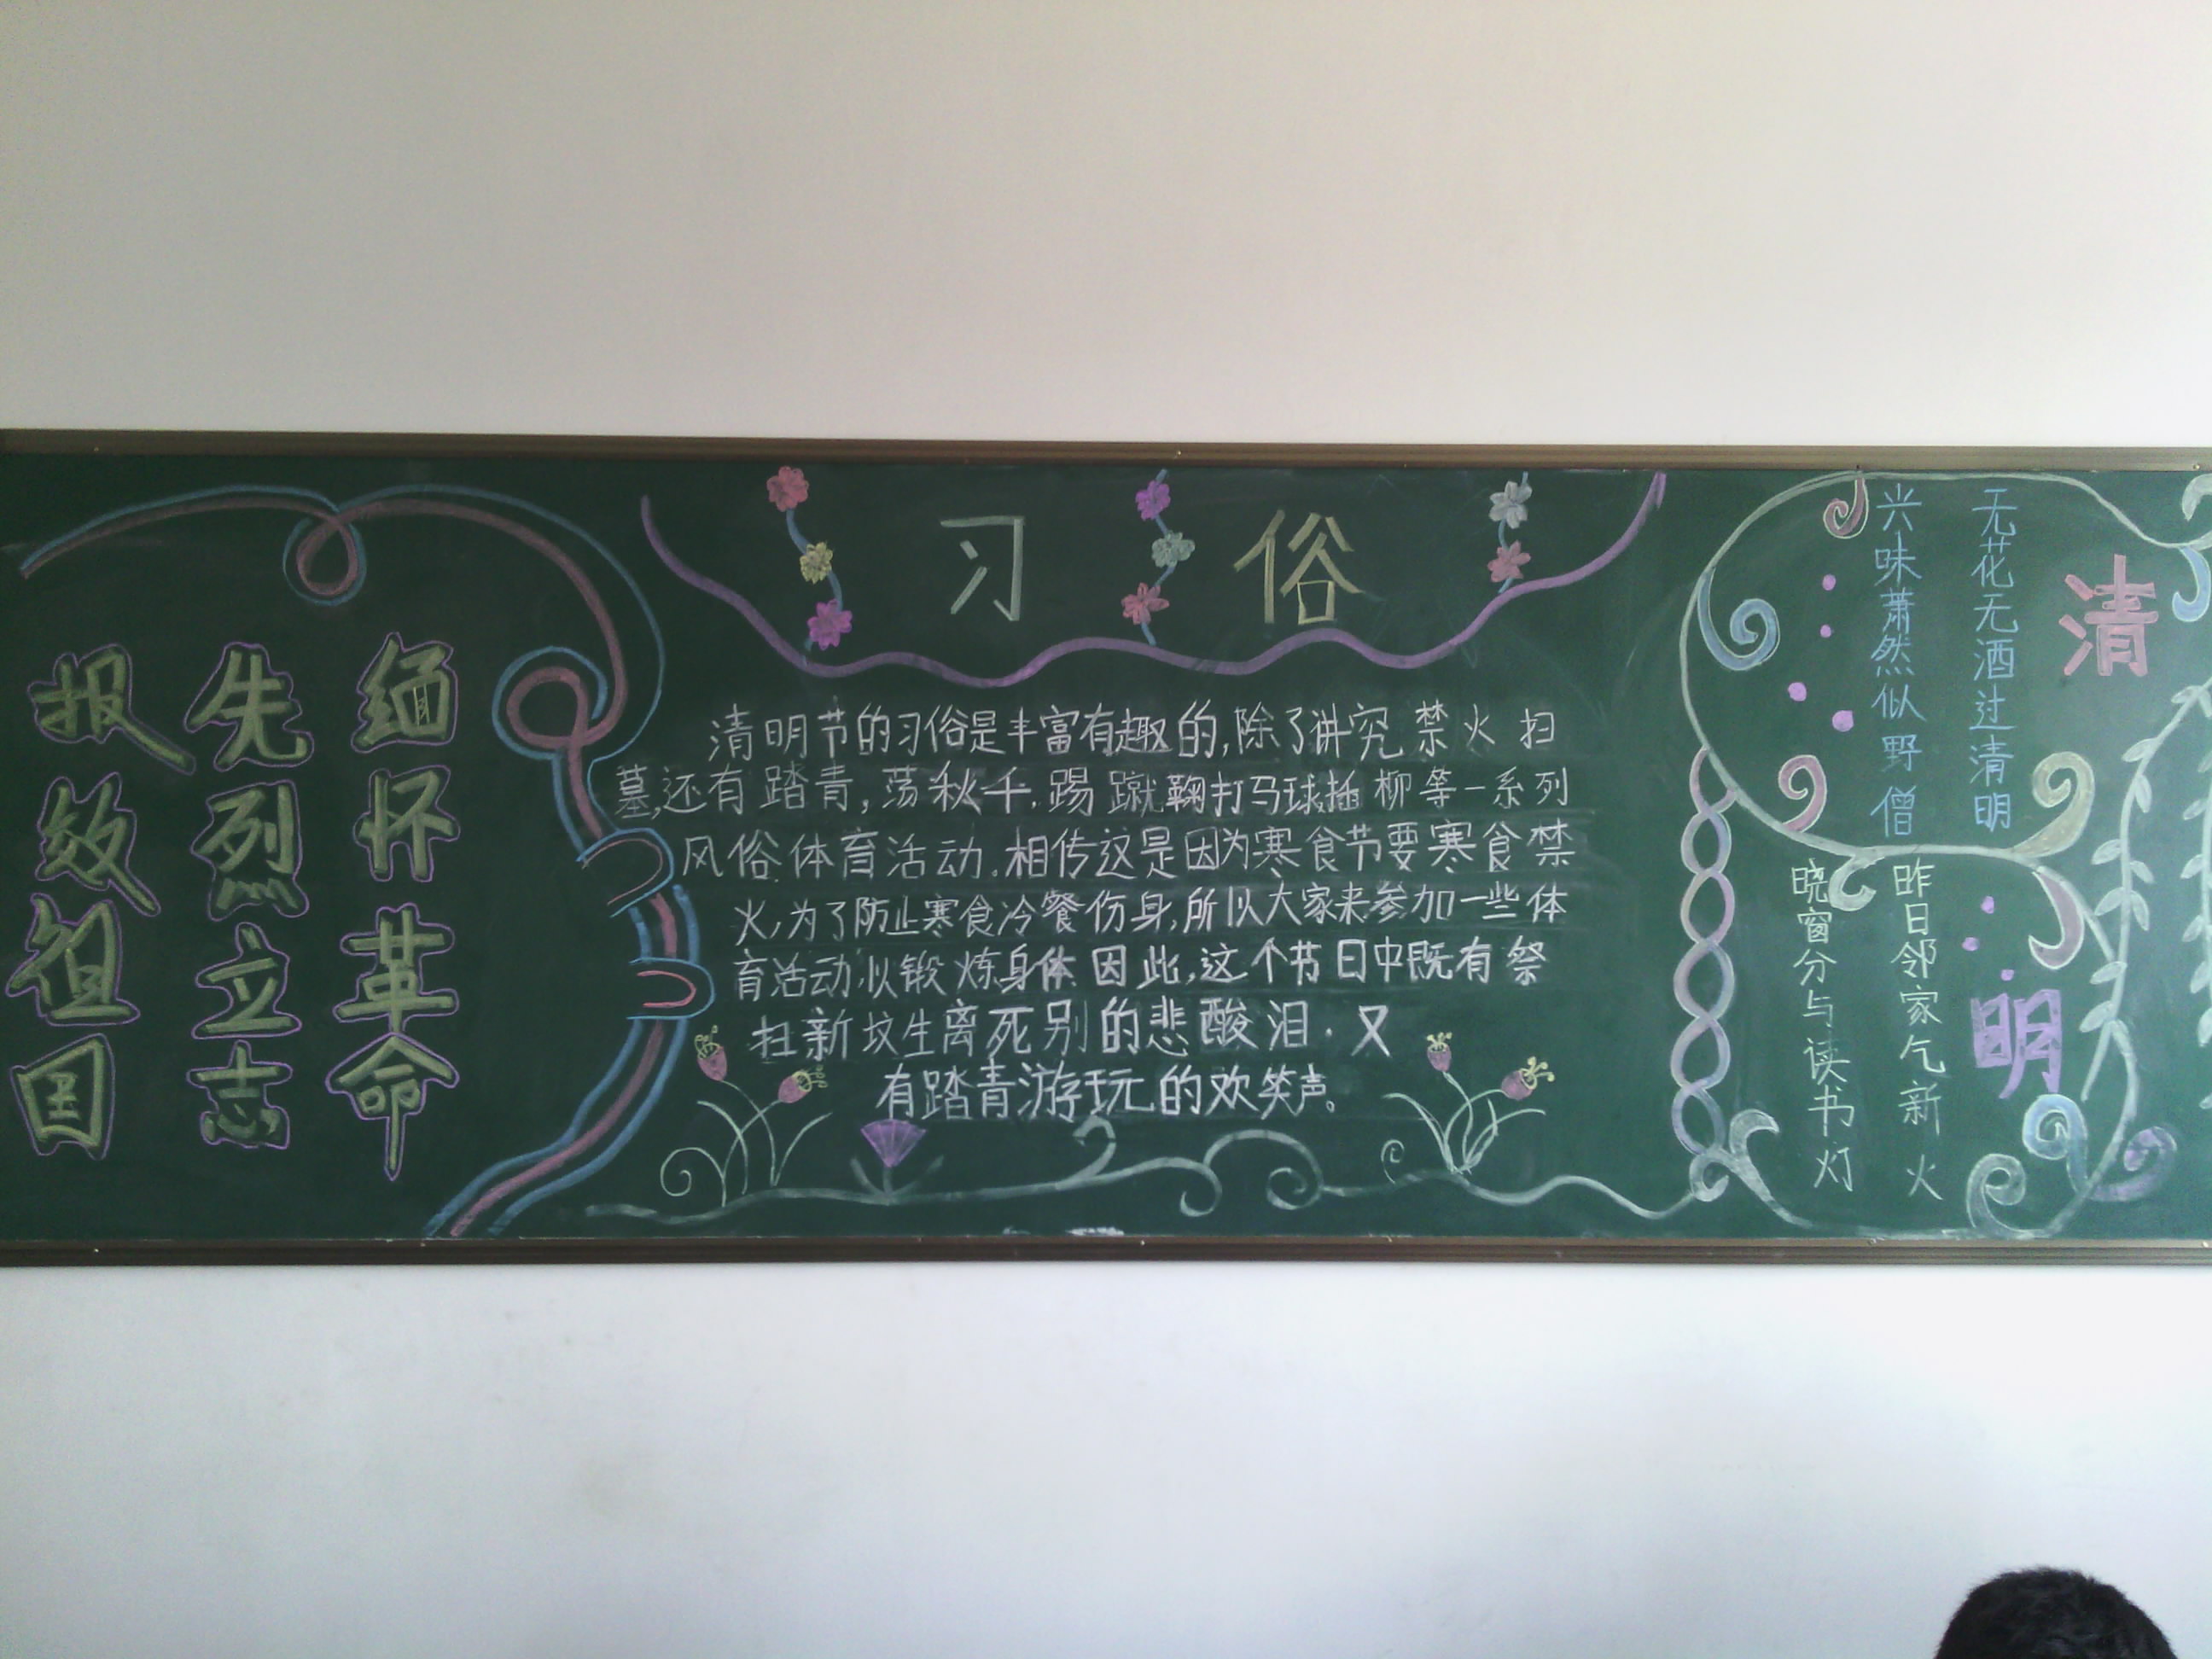 缅怀革命
先烈立志
报效祖国
习俗
清明节的习俗是丰富有趣的,除了讲究禁火扫
墓,还有踏青,荡秋千.踢蹴鞠打马球插柳等一系列
风俗体育活动.相传这是因为寒食节要寒食禁
火,为了防止寒食冷餐伤身,所以大家来参加一些体
育活动,以锻炼身体因此,这个节日中既有祭
扫新坟生离死别的悲酸泪.又
有踏青游玩的欢笑声。
清明
无花无酒过清明
兴味萧然似野僧
昨日邻家乞新火
晓窗分与读书灯